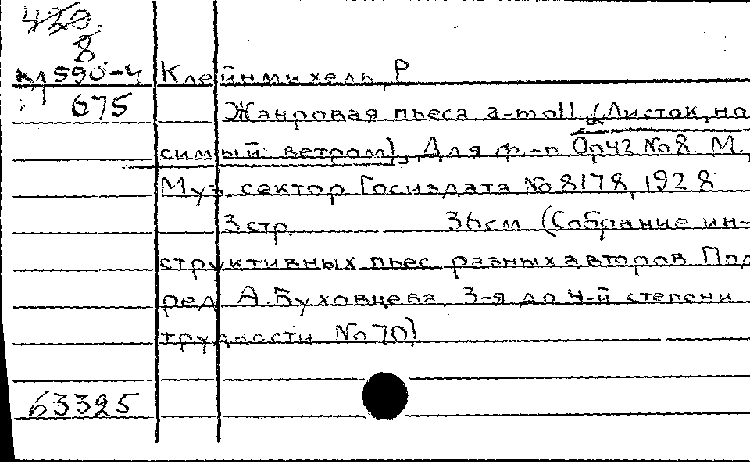 450
8
М 590-4 Клейнмихель, Р
675 Жанровая пьеса a-moll (Листок, но-
симый ветром). Для ф-п Op42 No8 М.,
Муз. сектор Госиздата No8178, 1928
3 стр. 36см (Собрание ин-
структивных пьес разных авторов Под
ред А. Буховцева. 3-я до 4-й степени
трудности No70)
63325